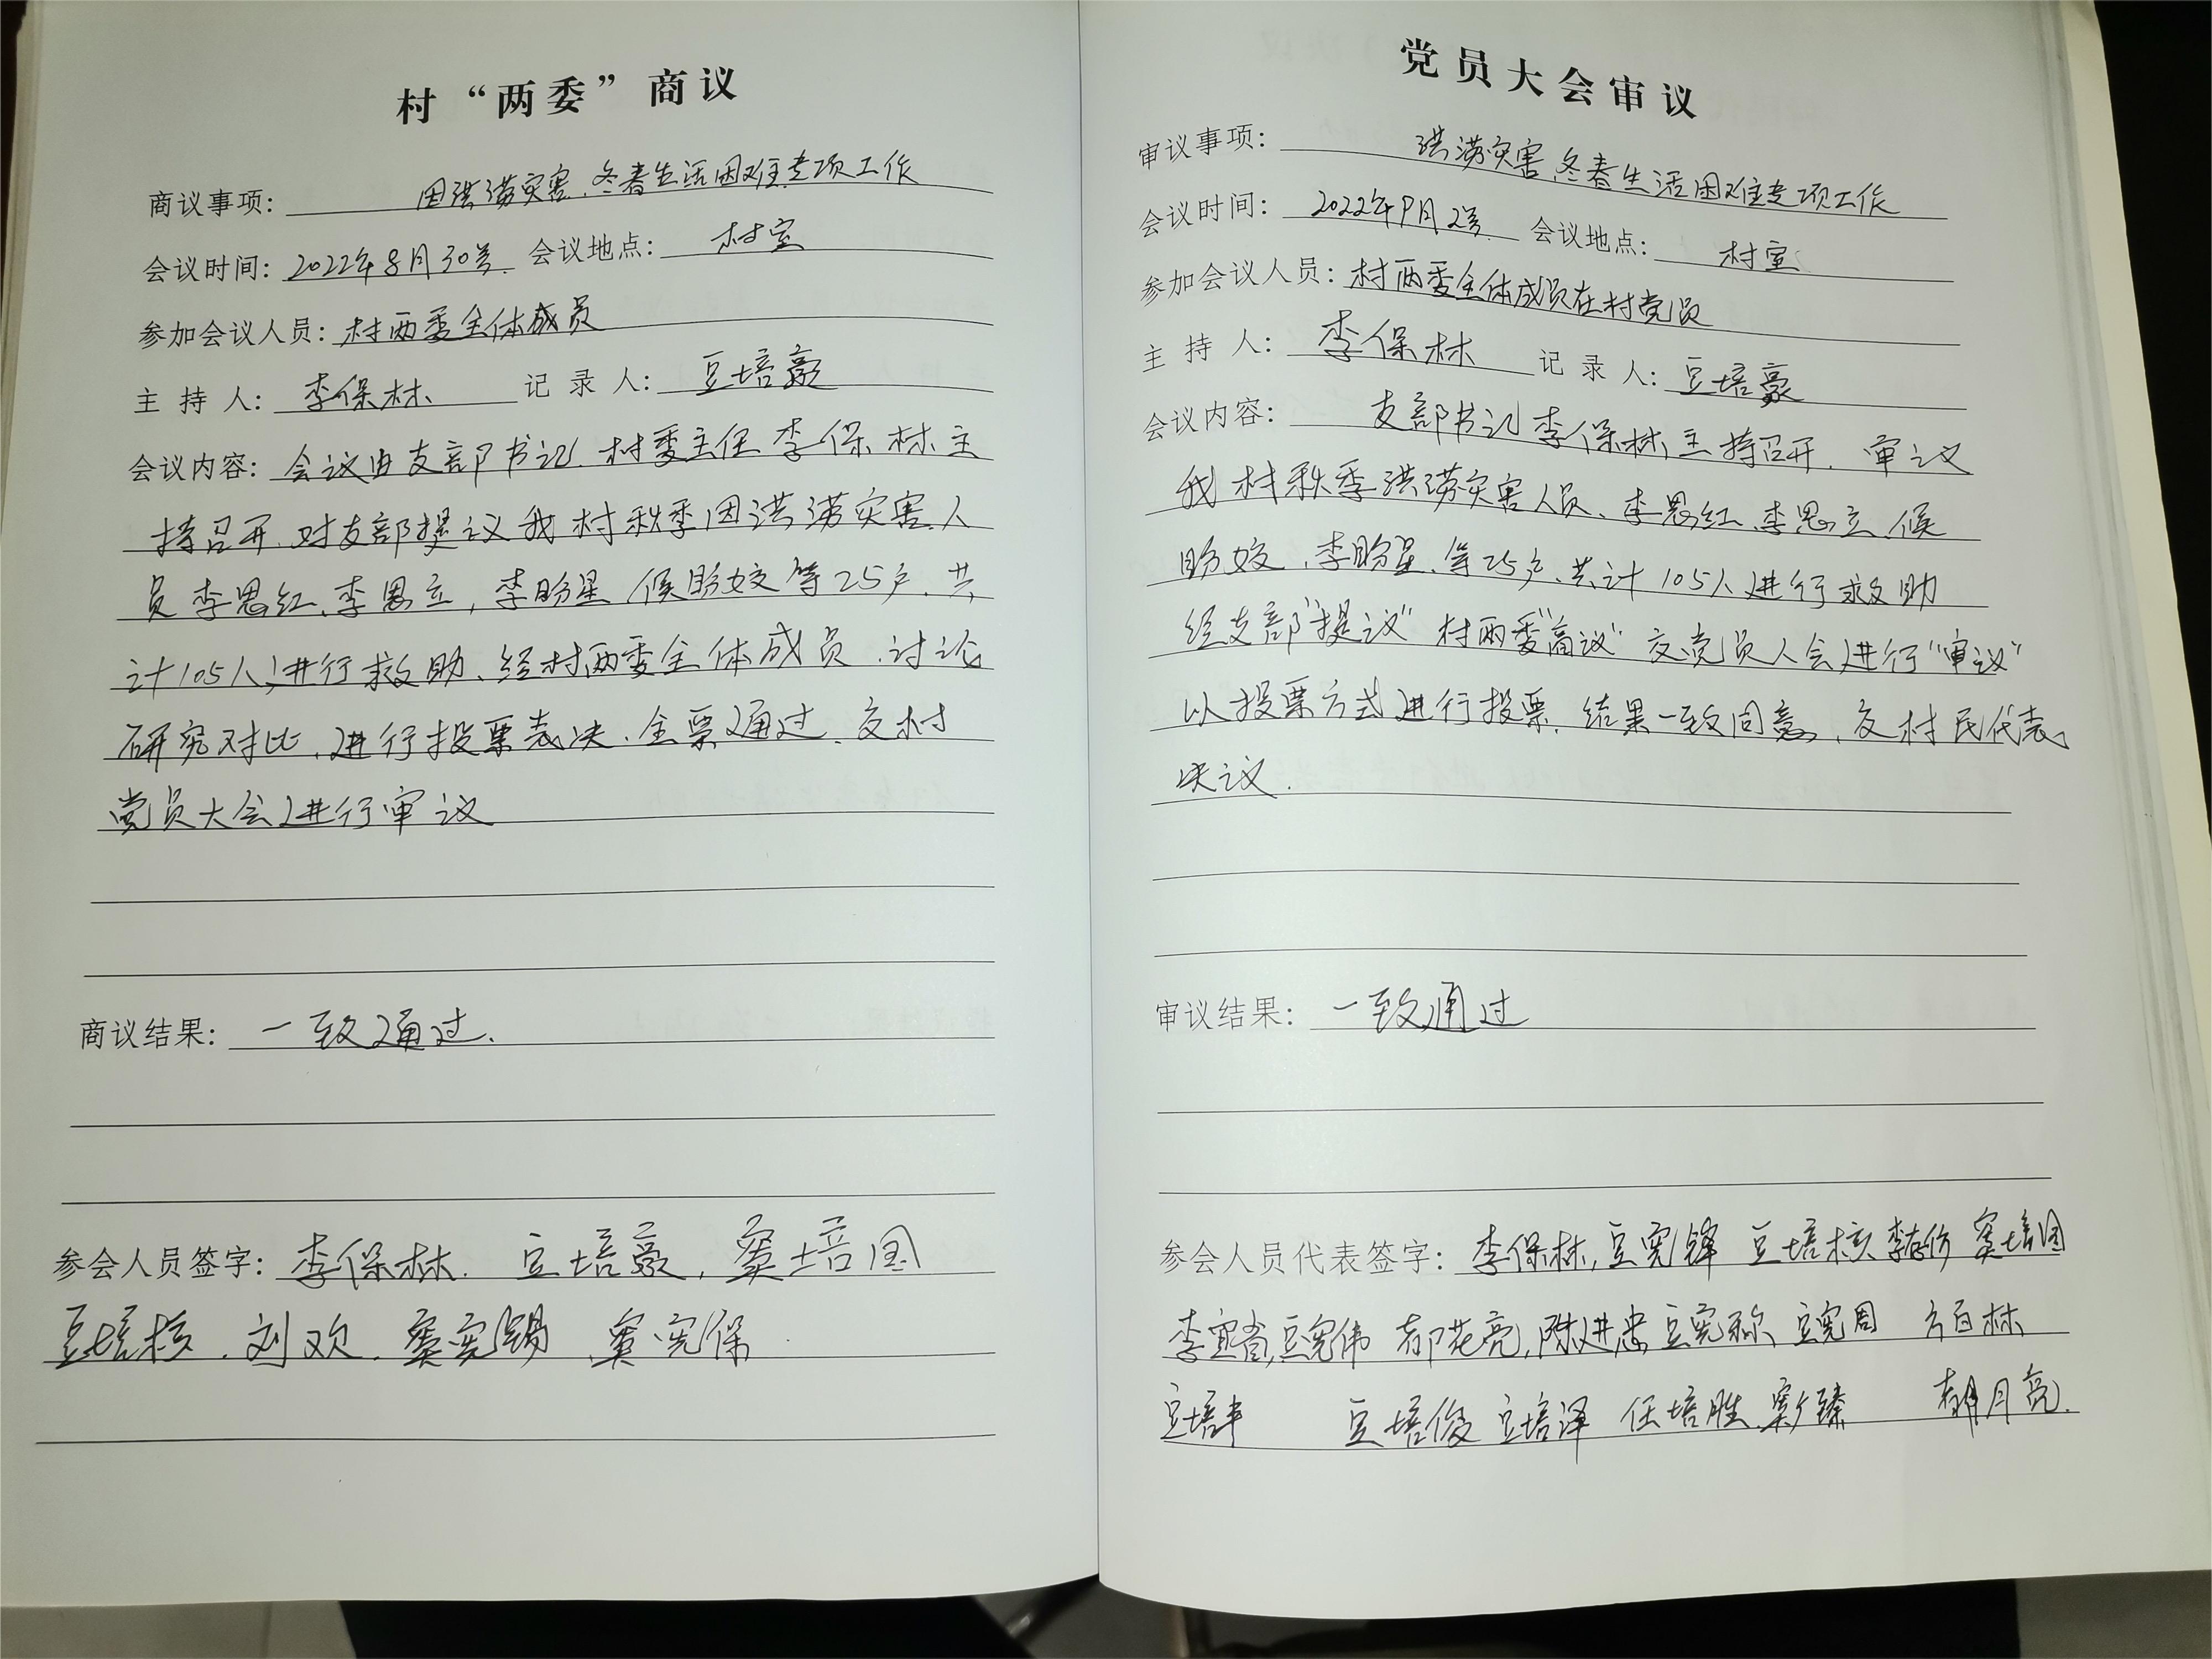 村“两委”商议
商议事项： 因洪涝灾害、冬春生活困难专项工作
会议时间：2022年8月30号 会议地点： 村室
参加会议人员：村两委全体成员
主持人： 李保林 记录人： 豆培豪
会议内容：会议由支部书记.村委主任李保林主
持召开.对支部提议我村秋季因洪涝灾害.人
员李思红、李思立，李盼星.候盼姣等25户.共
计105人进行救助、经村两委全体成员.讨论
研究对比.进行投票表决.全票通过.交村
党员大会进行审议
商议结果： 一致通过.
参会人员签字：李保林. 豆培豪，窦培国
豆培核.刘欢.窦宪锡 窦宪保
党员大会审议
审议事项： 洪涝灾害.冬春生活困难专项工作
会议时间： 2022年9月2号 会议地点： 村室
参加会议人员：村两委全体成员在村党员
主持人： 李保林 记录人：豆培豪
会议内容： 支部书记李保林主持召开.审议
我村秋季洪涝灾害人员、李思红、李思立.候
盼姣.李盼星、等25户.共计105人进行救助
经支部“提议”村两委“商议”交党员人会进行“审议”
以投票方式进行投票.结果一致同意.交村民代表
决议.
审议结果： 一致通过
参会人员代表签字：李保林,豆宪锋 豆培核 窦培国
豆宪伟 郝花亮,陈进忠 豆宪周 方百林
豆培丰 豆培俊 豆培泽 任培胜 郝月亮.